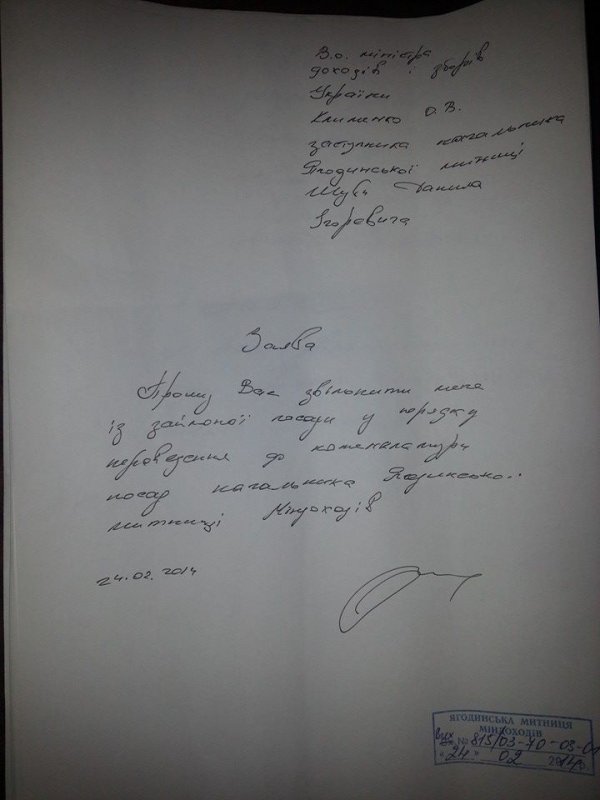 В.о. міністра
доходів і зборів
України
Клименко О.В.
заступника начальника
Ягодинської митниці
Шуби Данила
Ігоревича
Заява
Прошу Вас звільнити мене
із займаної посади у порядку
переведення до номенклатури
посад начальника Ягодинсько..
митниці Міндоходів
24.02.2014
ЯГОДИНСЬКА МИТНИЦЯ
МІНДОХОДІВ
Вх № 815/03-70-03-01
"24" 02 2014р.